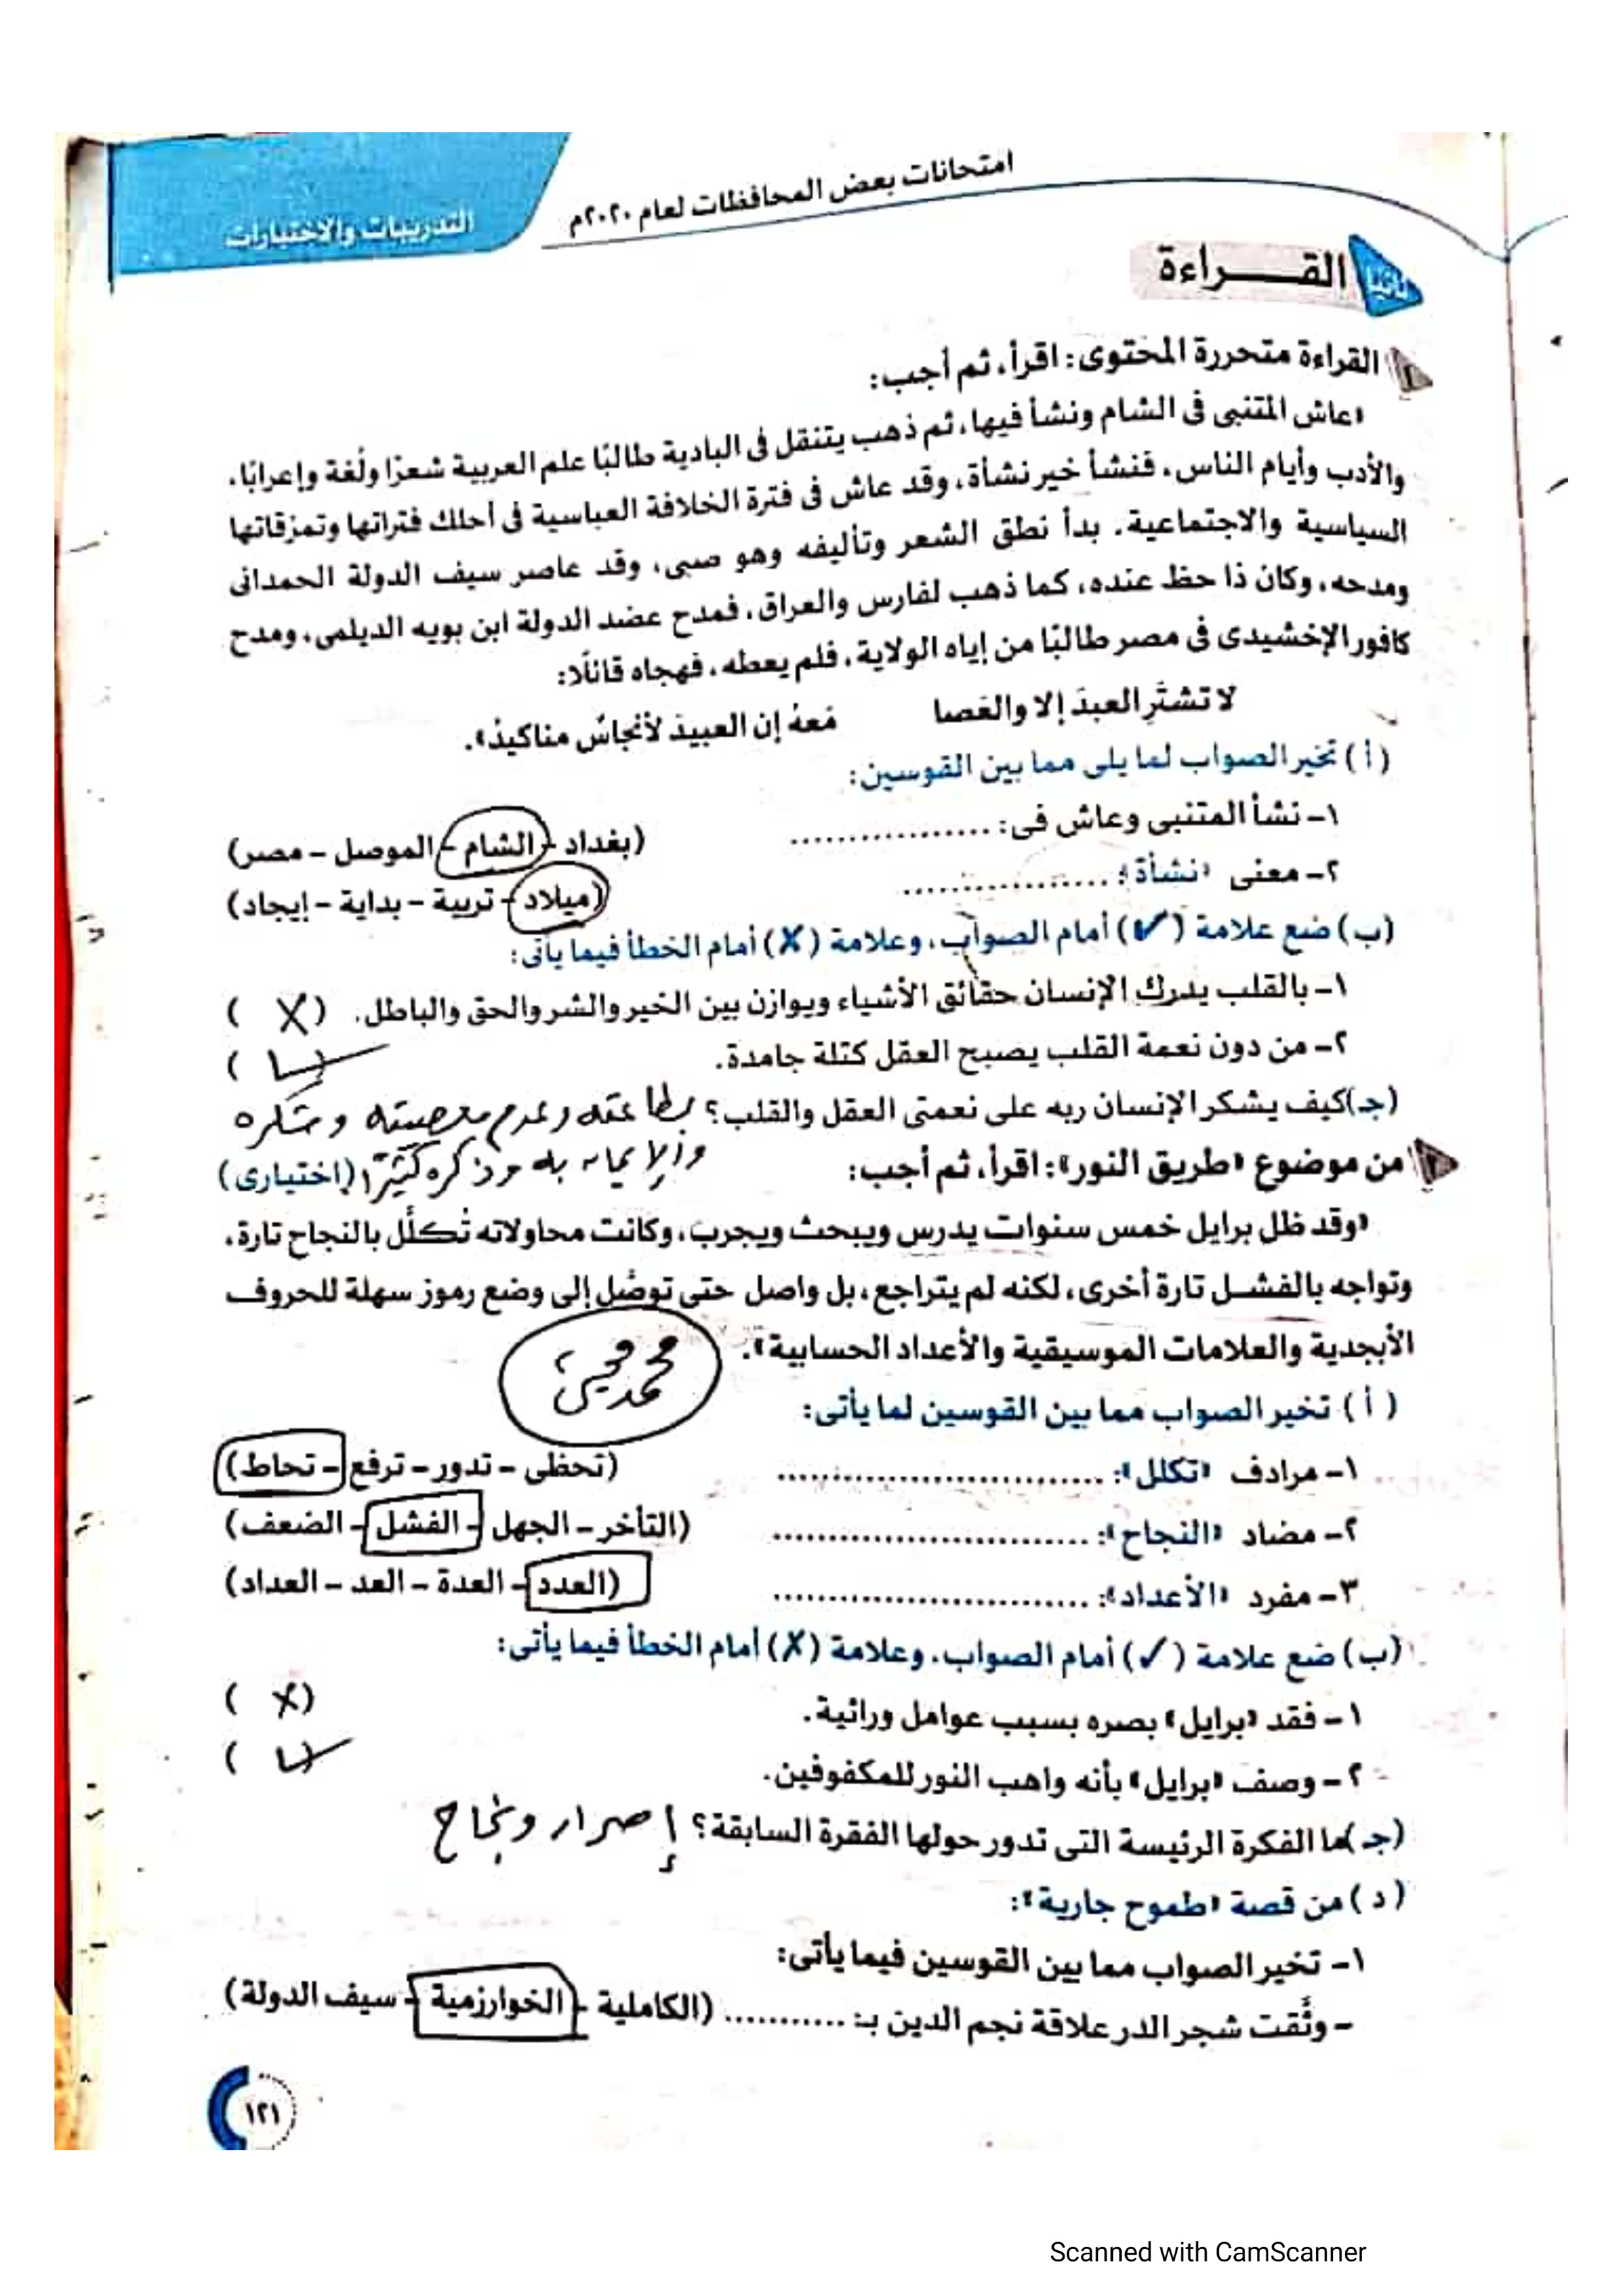 امتحانات بعض المحافظات لعام ٢٠٢٠م
التدريبات والاختبارات
ثانيا القــــراءة
١ القراءة متحررة المحتوى: اقرأ، ثم أجب:
«عاش المتنبى فى الشام ونشأ فيها، ثم ذهب يتنقل فى البادية طالبًا علم العربية شعرًا ولُغة وإعرابًا،
والأدب وأيام الناس، فنشأ خير نشأة، وقد عاش فى فترة الخلافة العباسية فى أحلك فتراتها وتمزقاتها
السياسية والاجتماعية. بدأ نطق الشعر وتأليفه وهو صبى، وقد عاصر سيف الدولة الحمدانى
ومدحه، وكان ذا حظ عنده، كما ذهب لفارس والعراق، فمدح عضد الدولة ابن بويه الديلمى، ومدح
كافور الإخشيدى فى مصر طالبًا من إياه الولاية، فلم يعطه، فهجاه قائلًا:
لا تشترِ العبدَ إلا والعَصا مَعهُ إن العبيدَ لأنجاسٌ مناكيدُ».
(أ) تخير الصواب لما يلى مما بين القوسين:
١- نشأ المتنبى وعاش فى: .................. (بغداد - الشام - الموصل - مصر)
٢- معنى «نشأة»: .................. (ميلاد - تربية - بداية - إيجاد)
(ب) ضع علامة (✓) أمام الصواب، وعلامة (✗) أمام الخطأ فيما يأتى:
١- بالقلب يدرك الإنسان حقائق الأشياء ويوازن بين الخير والشر والحق والباطل. (✗)
٢- من دون نعمة القلب يصبح العقل كتلة جامدة. (✓)
(جـ) كيف يشكر الإنسان ربه على نعمتى العقل والقلب؟ بطاعته وعدم معصيته وشكره
والإيمان به وذكره كثيرًا
٢ من موضوع «طريق النور»: اقرأ، ثم أجب: (اختيارى)
«وقد ظل برايل خمس سنوات يدرس ويبحث ويجرب، وكانت محاولاته تُكلَّل بالنجاح تارة،
وتواجه بالفشـل تارة أخرى، لكنه لم يتراجع، بل واصل حتى توصَّل إلى وضع رموز سهلة للحروف
الأبجدية والعلامات الموسيقية والأعداد الحسابية».
(أ) تخير الصواب مما بين القوسين لما يأتى:
١- مرادف «تكلل»: .............................. (تحظى - تدور - ترفع - تحاط)
٢- مضاد «النجاح»: .............................. (التأخر - الجهل - الفشل - الضعف)
٣- مفرد «الأعداد»: .............................. (العدد - العدة - العد - العداد)
(ب) ضع علامة (✓) أمام الصواب، وعلامة (✗) أمام الخطأ فيما يأتى:
١- فقد «برايل» بصره بسبب عوامل وراثية. (✗)
٢- وصف «برايل» بأنه واهب النور للمكفوفين. (✓)
(جـ) ما الفكرة الرئيسة التى تدور حولها الفقرة السابقة؟ إصرار ونجاح
(د) من قصة «طموح جارية»:
١- تخير الصواب مما بين القوسين فيما يأتى:
- وثَّقت شجر الدر علاقة نجم الدين بـ: ........... (الكاملية - الخوارزمية - سيف الدولة)
١٢١
Scanned with CamScanner